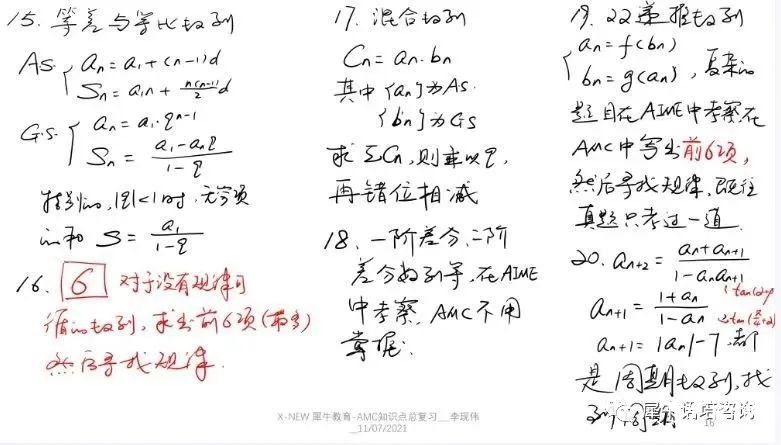 15. 等差与等比数列
A.S. { an = a1 + (n-1)d
Sn = a1n + n(n-1)/2 d
G.S. { an = a1·q^(n-1)
Sn = (a1 - anq)/(1 - q)
特别的, |q|<1时, 无穷项
的和 S = a1/(1 - q)
16. 6 对于没有规律可
循的数列, 求出前6项(最多)
然后寻找规律.
17. 混合数列
Cn = an·bn
其中{an}为A.S.
{bn}为GS
求ΣCn, 则乘以q,
再错位相减
18. 一阶差分、二阶
差分数列等, 在AIME
中考察, AMC不用
掌握.
19. 22递推数列
{ an = f(bn)
bn = g(an), 复杂的
题目在AIME中考察, 在
AMC中写出前6项,
然后寻找规律. 既往
真题只考过一道.
20. an+2 = (an + an+1)/(1 - an an+1)
an+1 = (1 + an)/(1 - an)
an+1 = |an| - 7, 都
是周期数列, 找
X-NEW 犀牛教育-AMC知识点总复习__李现伟
__11/07/2021
16